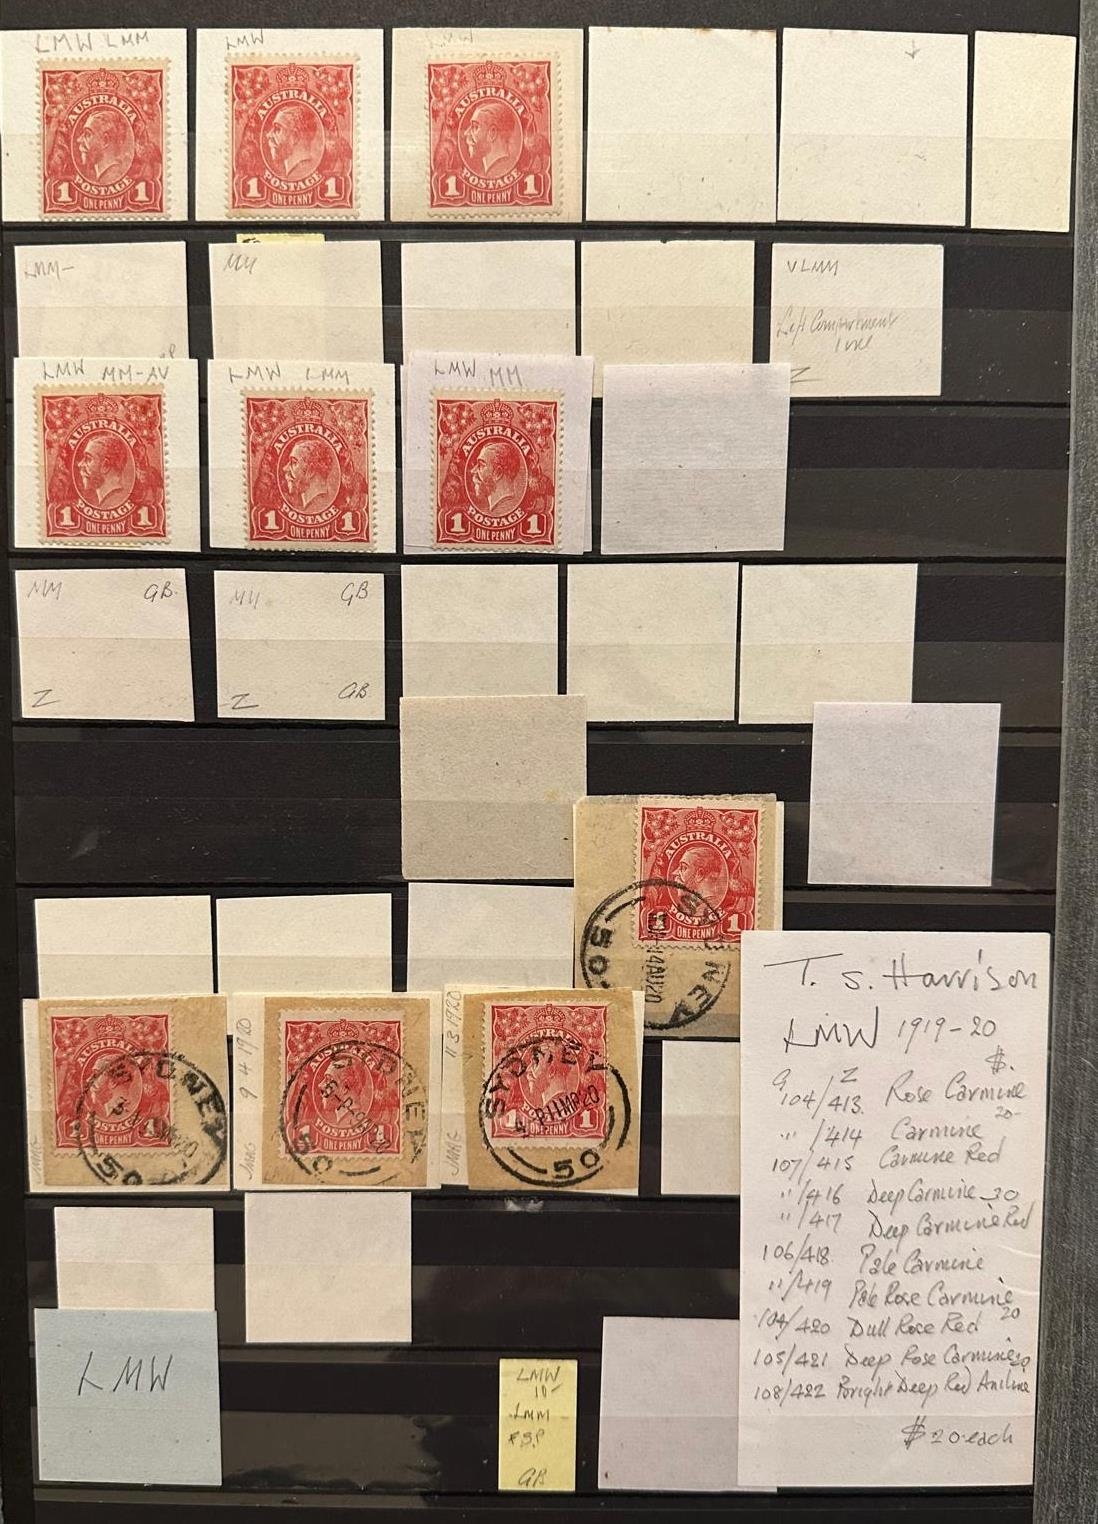 LMW LMM
LMW
LMW
AUSTRALIA
POSTAGE
1 1
ONE PENNY
AUSTRALIA
POSTAGE
1 1
ONE PENNY
AUSTRALIA
POSTAGE
1 1
ONE PENNY
LMM-
MM
VLMM
Left Compartment
Z
LMW MM-AV
LMW LMM
LMW MM
AUSTRALIA
POSTAGE
1 1
ONE PENNY
AUSTRALIA
POSTAGE
1 1
ONE PENNY
AUSTRALIA
POSTAGE
1 1
ONE PENNY
MM GB.
Z
MM GB
Z GB
AUSTRALIA
POSTAGE
1
ONE PENNY
SYDNEY
14AU20
50
AUSTRALIA
POSTAGE
1
ONE PENNY
SYDNEY
50
9 4 1920
AUSTRALIA
POSTAGE
1
ONE PENNY
SYDNEY
50
11 3 1920
AUSTRALIA
POSTAGE
1 1
ONE PENNY
SYDNEY
11MR20
50
T. S. Harrison
LMW 1919-20
G Z $.
104/413. Rose Carmine
" /414 Carmine 20-
107/415 Carmine Red
" /416 Deep Carmine 20
" /417 Deep Carmine Red
106/418. Pale Carmine
" /419 Pale Rose Carmine
104/420 Dull Rose Red 20
105/421 Deep Rose Carmine 20
108/422 Bright Deep Red Aniline
$20-each
LMW
LMW
10-
LMM
GB